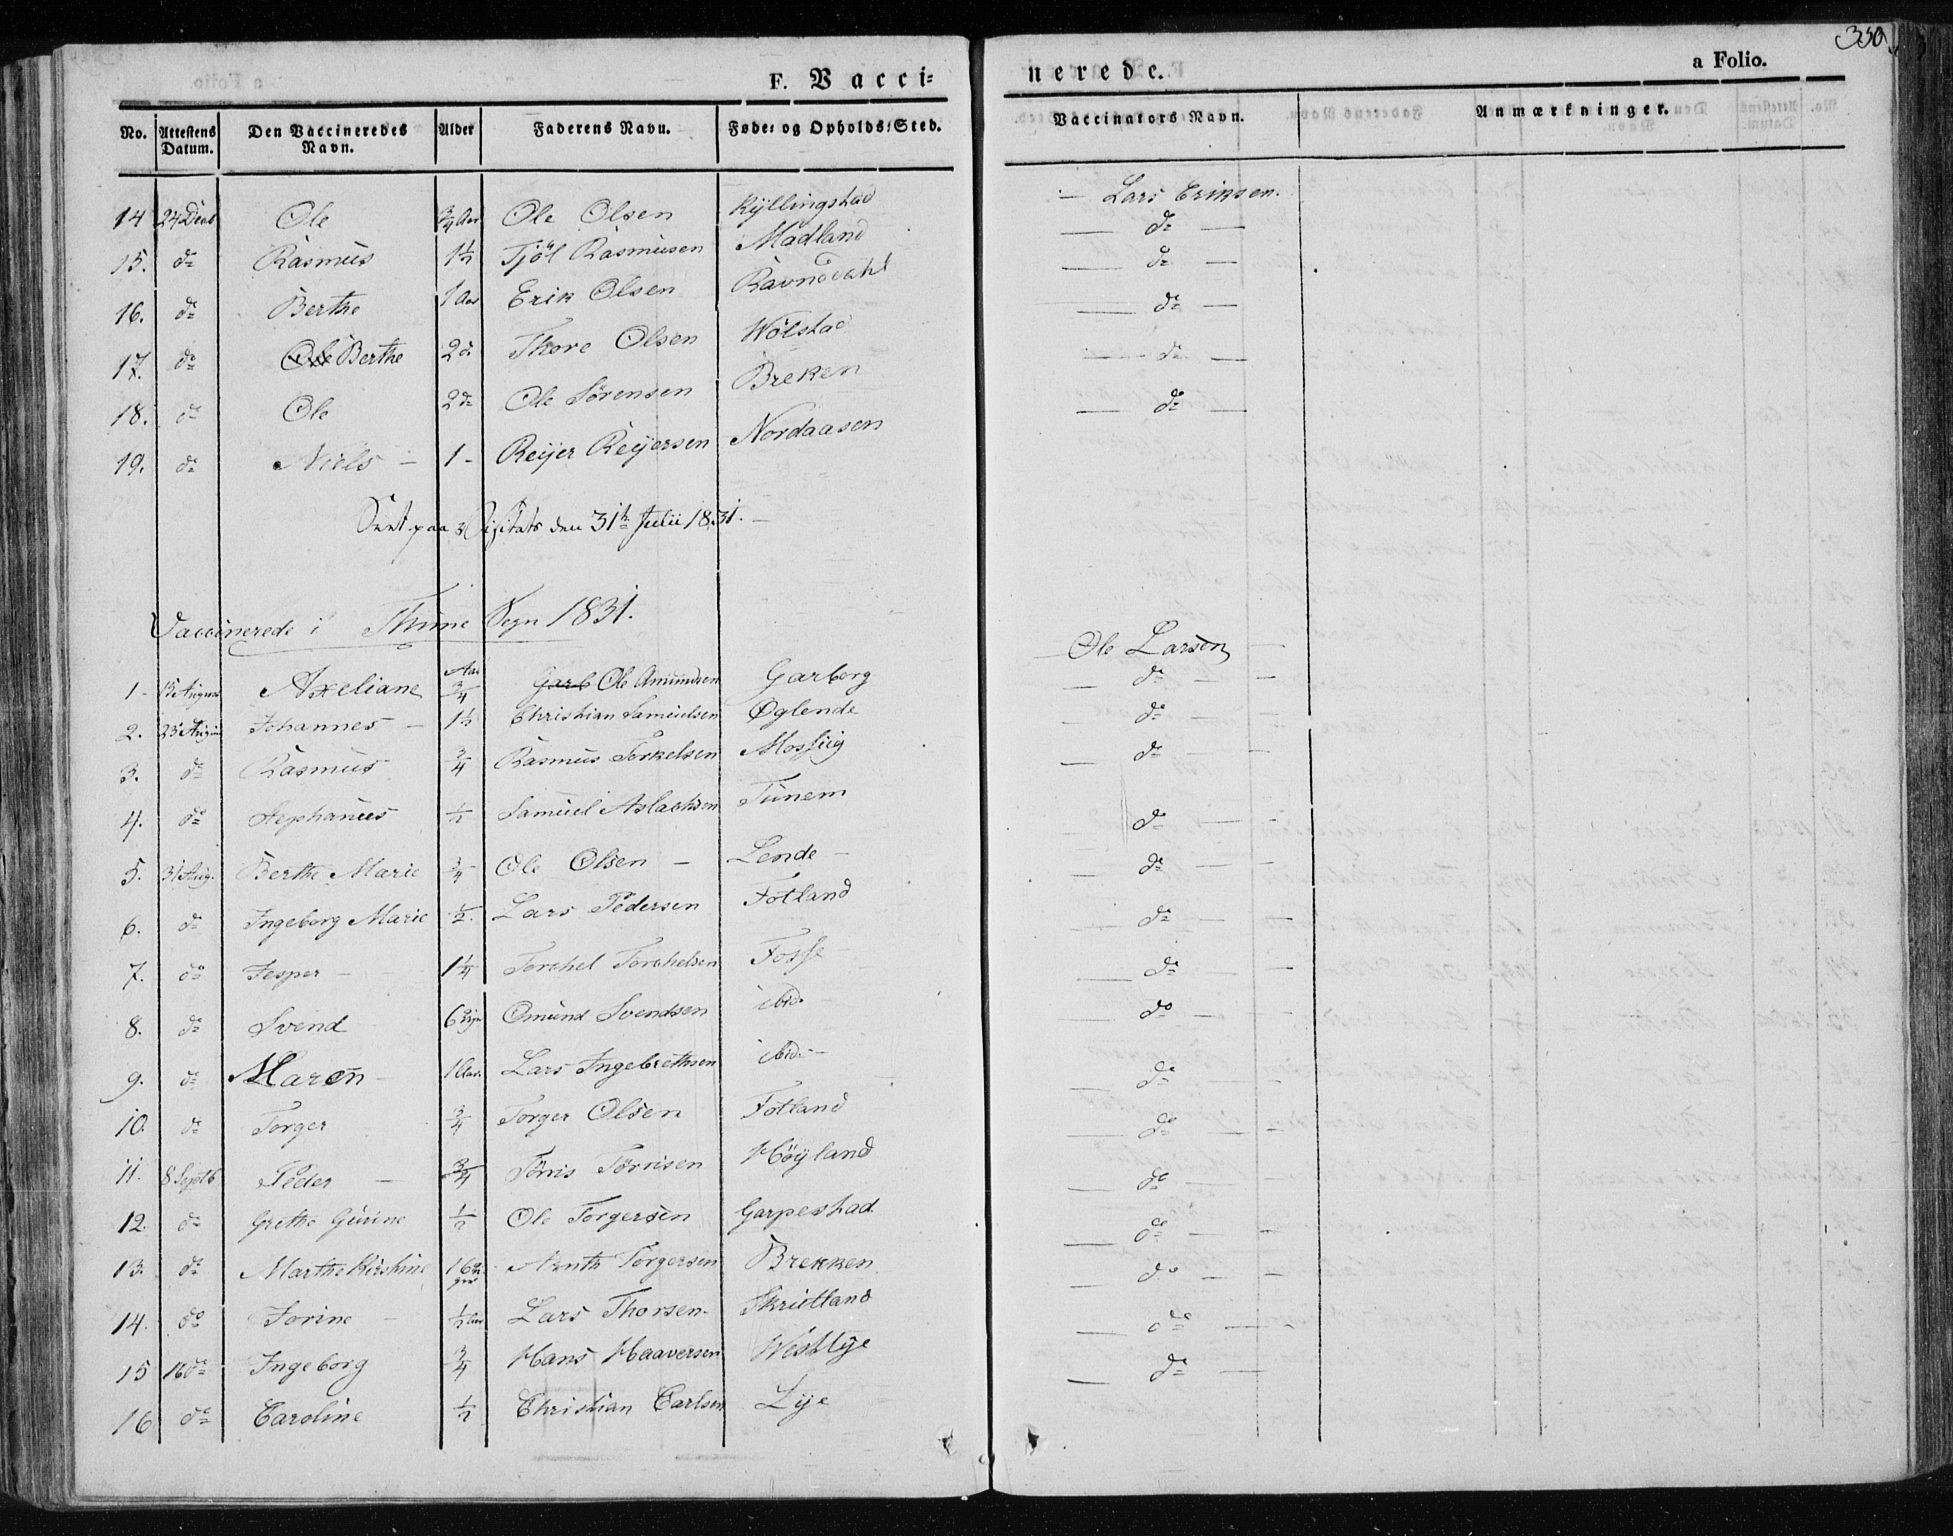 330
F. Vacci=
nerede.
a Folio.
No. Attestens Datum. Den Vaccineredes Navn. Alder Faderens Navn. Føde= og Opholds=Sted. Vaccinators Navn. Anmærkninger.
14 24 Decb Ole 3/4 Aar Ole Olsen Kyllingstad — Lars Eriksen.
15. do Rasmus 1½ Tjöl Rasmusen Madland — do —
16. do Berthe 1 Aar Erik Olsen Ravndahl — do —
17. do Ole Berthe 2 do Thore Olsen Wölstad — do —
18. do Ole 2 do Ole Sørensen Breken — do —
19. do Niels — 1 - Reyer Reyersen Nordaasen — do —
Seet paa Visitats den 31te Julii 1831. —
Vaccinerede i Thime Sogn 1831.
1 - 15 August Axeliane Aar 3/4 Garb Ole Amundsen Garborg Ole Larsen —
2. 23 August Johannes — 1½ Christian Samuelsen Øglende — do —
3. do Rasmus 3/4 Rasmus Torkelsen Mossiig — do —
4. do Stephanus ½ Samuel Aslachsen Tunem — do —
5. 31 Aug. Berthe Marie 3/4 Ole Olsen — Lende — — do —
6. do Ingeborg Marie ½ Lars Pedersen Fotland — do —
7. do Jesper — 1¼ Torchel Torchelsen Fosse — do —
8. do Svend 6 Omund Svendsen ibid. — do —
9. do Maren 1 Aar Lars Ingebrethsen ibid. — — do —
10. do Torger 3/4 Torger Olsen Fotland — do —
11. 8 Septb Peder — 3/4 Törris Törrisen Höyland — do —
12. do Grethe Gurine ½ Ole Torgersen Garpestad — do —
13. do Marthe Kirstine 16 Uger Torgersen Brekken — do —
14. do Torine — ½ Aar Lars Thorsen Skrutland — do —
15 16 do Ingeborg 3/4 Hans Haaversen Westlye — do —
16 do Caroline ½ Christian Carlsen Lye — do —